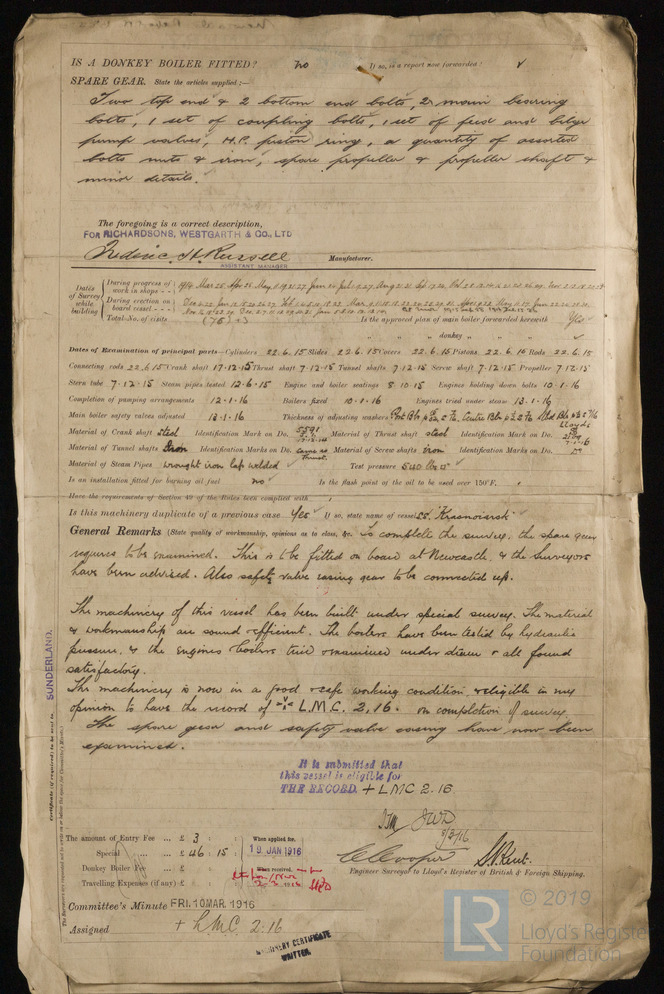 IS A DONKEY BOILER FITTED? no If so, is a report now forwarded?
SPARE GEAR. State the articles supplied:—
Two top end & 2 bottom end bolts, 2 main bearing
bolts, 1 set of coupling bolts, 1 set of feed and bilge
pump valves, H.P. piston ring, a quantity of assorted
bolts nuts & iron, spare propeller & propeller shaft &
minor details.
The foregoing is a correct description,
FOR RICHARDSONS, WESTGARTH & CO., LTD
Frederic A Russell Manufacturer.
ASSISTANT MANAGER
Dates of Survey while building
During progress of work in shops - -
During erection on board vessel - - -
Total No. of visits (75) Is the approved plan of main boiler forwarded herewith Yes
" " " donkey " " "
Dates of Examination of principal parts—Cylinders 22.6.15 Slides 22.6.15 Covers 22.6.15 Pistons 22.6.15 Rods 22.6.15
Connecting rods 22.6.15 Crank shaft 17.12.15 Thrust shaft 7.12.15 Tunnel shafts 7.12.15 Screw shaft 7.12.15 Propeller 7.12.15
Stern tube 7.12.15 Steam pipes tested 12.6.15 Engine and boiler seatings 5.10.15 Engines holding down bolts 10.1.16
Completion of pumping arrangements 12.1.16 Boilers fixed 10.1.16 Engines tried under steam 13.1.16
Main boiler safety valves adjusted 13.1.16 Thickness of adjusting washers
Material of Crank shaft steel Identification Mark on Do. 5591 Material of Thrust shaft steel Identification Mark on Do.
Material of Tunnel shafts Iron Identification Marks on Do. same as Thrust Material of Screw shafts iron Identification Marks on Do.
Material of Steam Pipes wrought iron lap welded Test pressure 540 lbs
Is an installation fitted for burning oil fuel no Is the flash point of the oil to be used over 150°F.
Have the requirements of Section 49 of the Rules been complied with
Is this machinery duplicate of a previous case Yes If so, state name of vessel SS. Krasnoiarsk
General Remarks (State quality of workmanship, opinions as to class, &c. To complete the survey, the spare gear
requires to be examined. This is to be fitted on board at Newcastle, & the Surveyors
have been advised. Also safety valve easing gear to be connected up.
The machinery of this vessel has been built under special survey. The material
& workmanship are sound & efficient. The boilers have been tested by hydraulic
pressure, & the engines & boilers tried & examined under steam & all found
satisfactory.
The machinery is now in a good & safe working condition, & eligible in my
opinion to have the record of + L.M.C. 2.16. on completion of survey.
The spare gear and safety valve easing have now been
examined.
It is submitted that
this vessel is eligible for
THE RECORD. + LMC 2.16
JWD
9/3/16
The amount of Entry Fee ... £ 3 : :
Special ... £ 46 : 15 :
Donkey Boiler Fee ... £ : :
Travelling Expenses (if any) £ : :
When applied for,
19 JAN 1916
When received,
C Cooper S. Kent.
Engineer Surveyor to Lloyd's Register of British & Foreign Shipping.
Committee's Minute FRI. 10 MAR 1916
Assigned + LMC 2.16
MACHINERY CERTIFICATE
WRITTEN.
SUNDERLAND.
Certificate (if required) to be sent to
© 2019
LR
Lloyd's Register
Foundation